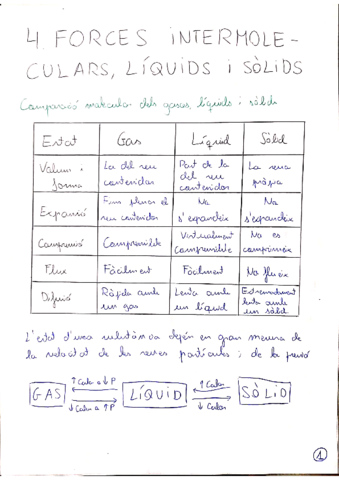 4. FORCES INTERMOLE-
CULARS, LÍQUIDS i SÒLIDS
Comparació molecular dels gasos, líquids i sòlids
Estat Gas Líquid Sòlid
Volum i forma La del seu contenidor Part de la del seu contenidor La seva pròpia
Expansió Fins plenar el seu contenidor No s'expandeix No s'expandeix
Compressió Compressible Virtualment compressible No es comprimeix
Flux Fàcilment Fàcilment No flueix
Difusió Ràpida amb un gas Lenta amb un líquid Extremadament lenta amb un sòlid
L'estat d'una substància depèn en gran mesura de
la velocitat de les seves partícules i de la pressió
↑ Calor o ↓ P ↑ Calor
GAS LÍQUID SÒLID
↓ Calor o ↑ P ↓ Calor
1